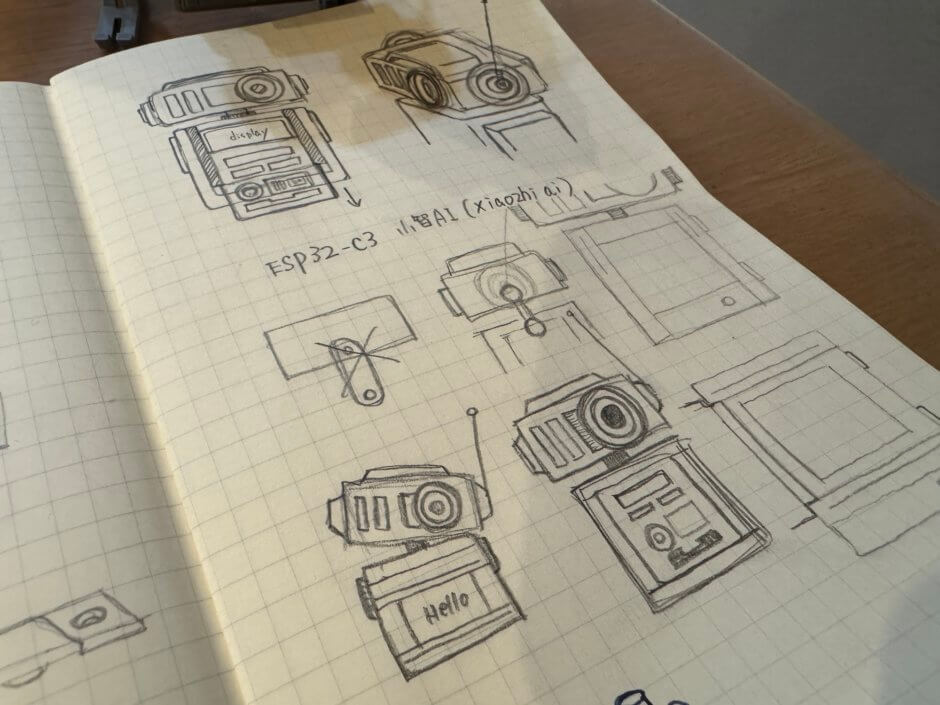 display
ESP32-C3 小智AI (xiaozhi ai)
Hello